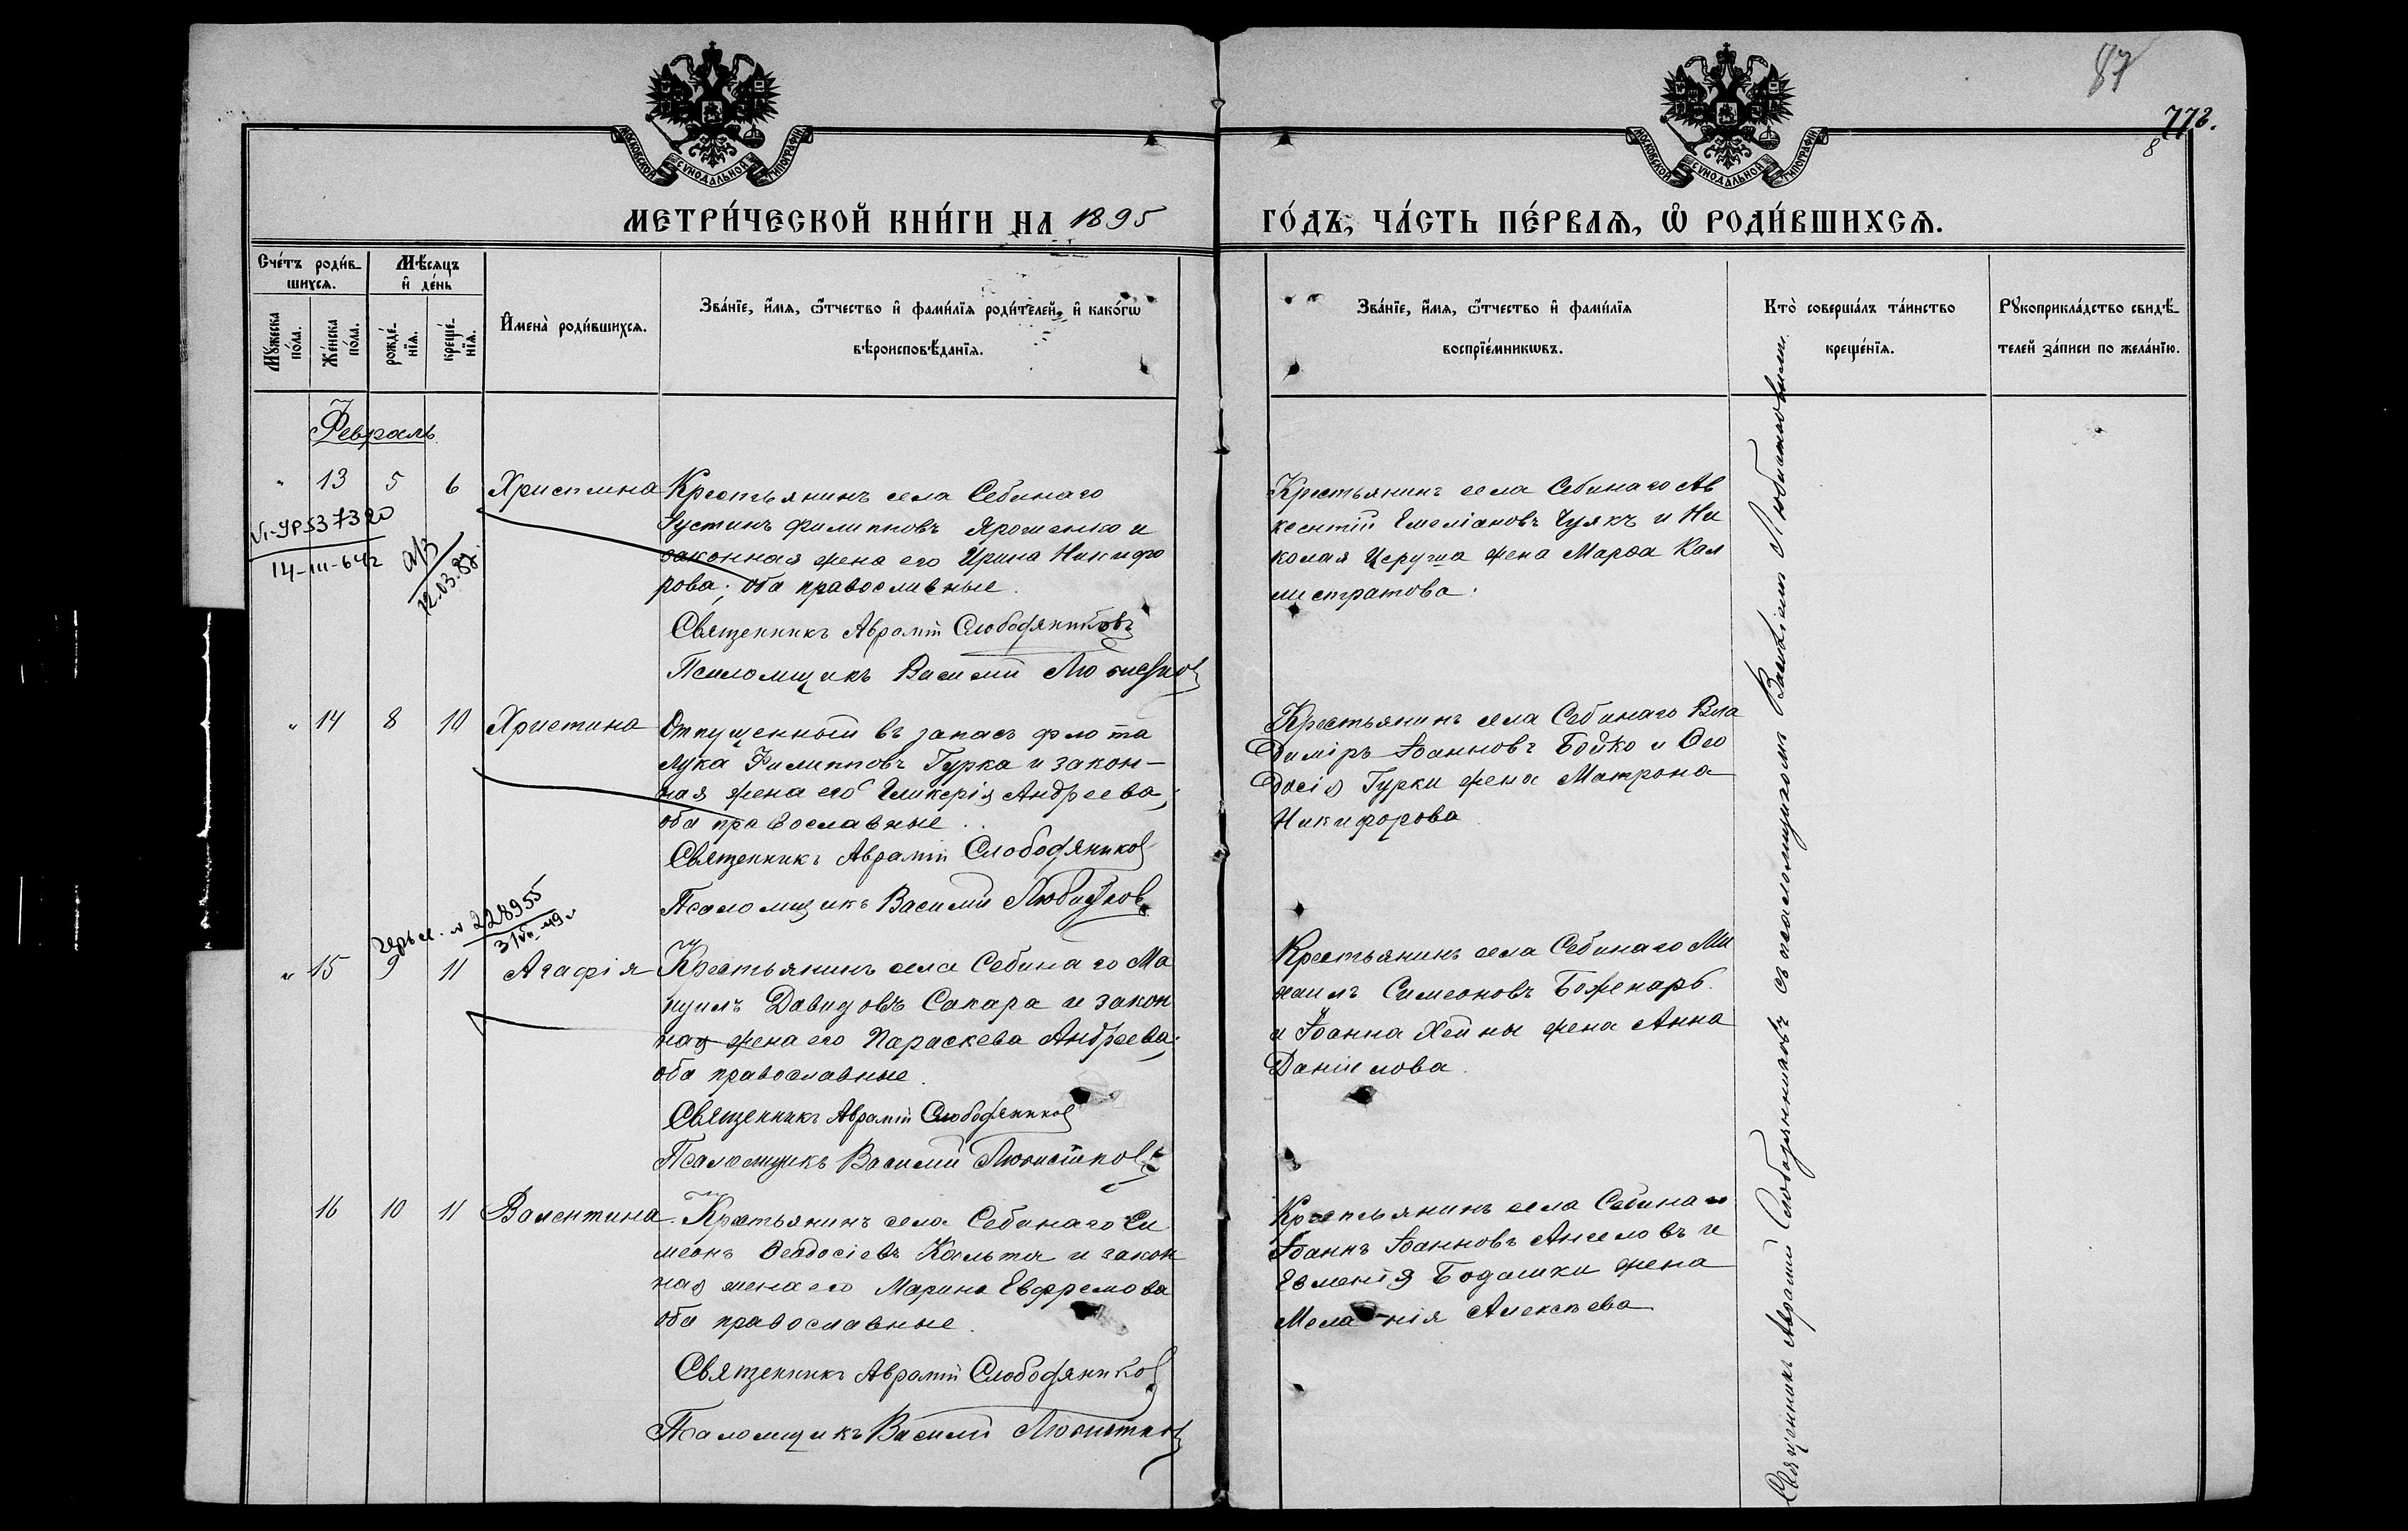 87
772.
8
МОСКОВСКОЙ СѴНОДАЛЬНОЙ ТИПОГРАФІИ
МОСКОВСКОЙ СѴНОДАЛЬНОЙ ТИПОГРАФІИ
МЕТРИ́ЧЕСКОЙ КНИ́ГИ НА 1895 ГО́ДЪ, ЧА́СТЬ ПЕ́РВАѦ, Ѡ҆ РОДИ́ВШИХСѦ.
Сче́тъ роди́в-
шихсѧ.
Мѣ́сѧцъ
и҆ де́нь
Мꙋ́жеска
по́ла.
Же́нска
по́ла.
рожде́-
нїѧ.
креще́-
нїѧ.
И҆мена̀ роди́вшихсѧ.
Зва́нїе, и҆́мѧ, ѻ҆́тчество и҆ фами́лїѧ роди́телей, и҆ како́гѡ
вѣроисповѣ́данїѧ.
Зва́нїе, и҆́мѧ, ѻ҆́тчество и҆ фами́лїѧ
воспрїе́мникѡвъ.
Кто̀ соверша́лъ та́инство
креще́нїѧ.
Рꙋкоприкла́дство свидѣ́-
телей за́писи по жела́нїю.
Февраль
" 13 5 6 Христина
Крестьянинъ села Себинаго
Іустинъ Филипповъ Ярошенко и
законная жена его Ирина Никифо
рова; оба православные.
Священникъ Аврамій Слободяниковъ
Псаломщикъ Василій Любистков
Крестьянинъ села Себинаго Ав
ксентій Емеліановъ Чуякъ и Ни
колая Церуша жена Марѳа Кал
листратова.
537320
14-III-642
12.03.87
" 14 8 10 Христина
Отпущенный въ запасъ флота
Лука Филипповъ Гурка и закон-
ная жена его Гликерія Андреева;
оба православные.
Священникъ Аврамій Слободяников
Псаломщикъ Василій Любистков
Крестьянинъ села Себинаго Вла
диміръ Іоанновъ Бойко и Ѳео
досія Гурки жена Матрона
Никифорова
№ 228955
" 15 9 11 Агафія
Крестьянинъ села Себинаго Ма
нуилъ Давидовъ Сакара и закон
ная жена его Параскева Андреева;
оба православные.
Священникъ Аврамій Слободяников
Псаломщикъ Василій Любистков
Крестьянинъ села Себинаго Ми
хаилъ Симеоновъ Боженаръ
и Іоанна Хейны жена Анна
Даніилова.
16 10 11 Валентина
Крестьянинъ села Себинаго Си
меонъ Ѳеодосіевъ Кальта и закон
ная жена его Марина Евфремова
оба православные.
Священникъ Аврамій Слободяников
Псаломщикъ Василій Любистков
Крестьянинъ села Себинаго
Іоаннъ Іоанновъ Ангеловъ и
Евменія Бодашки жена
Меланія Алексѣева
Священникъ Аврамій Слободяниковъ съ псаломщикомъ Василіемъ Любистковымъ.